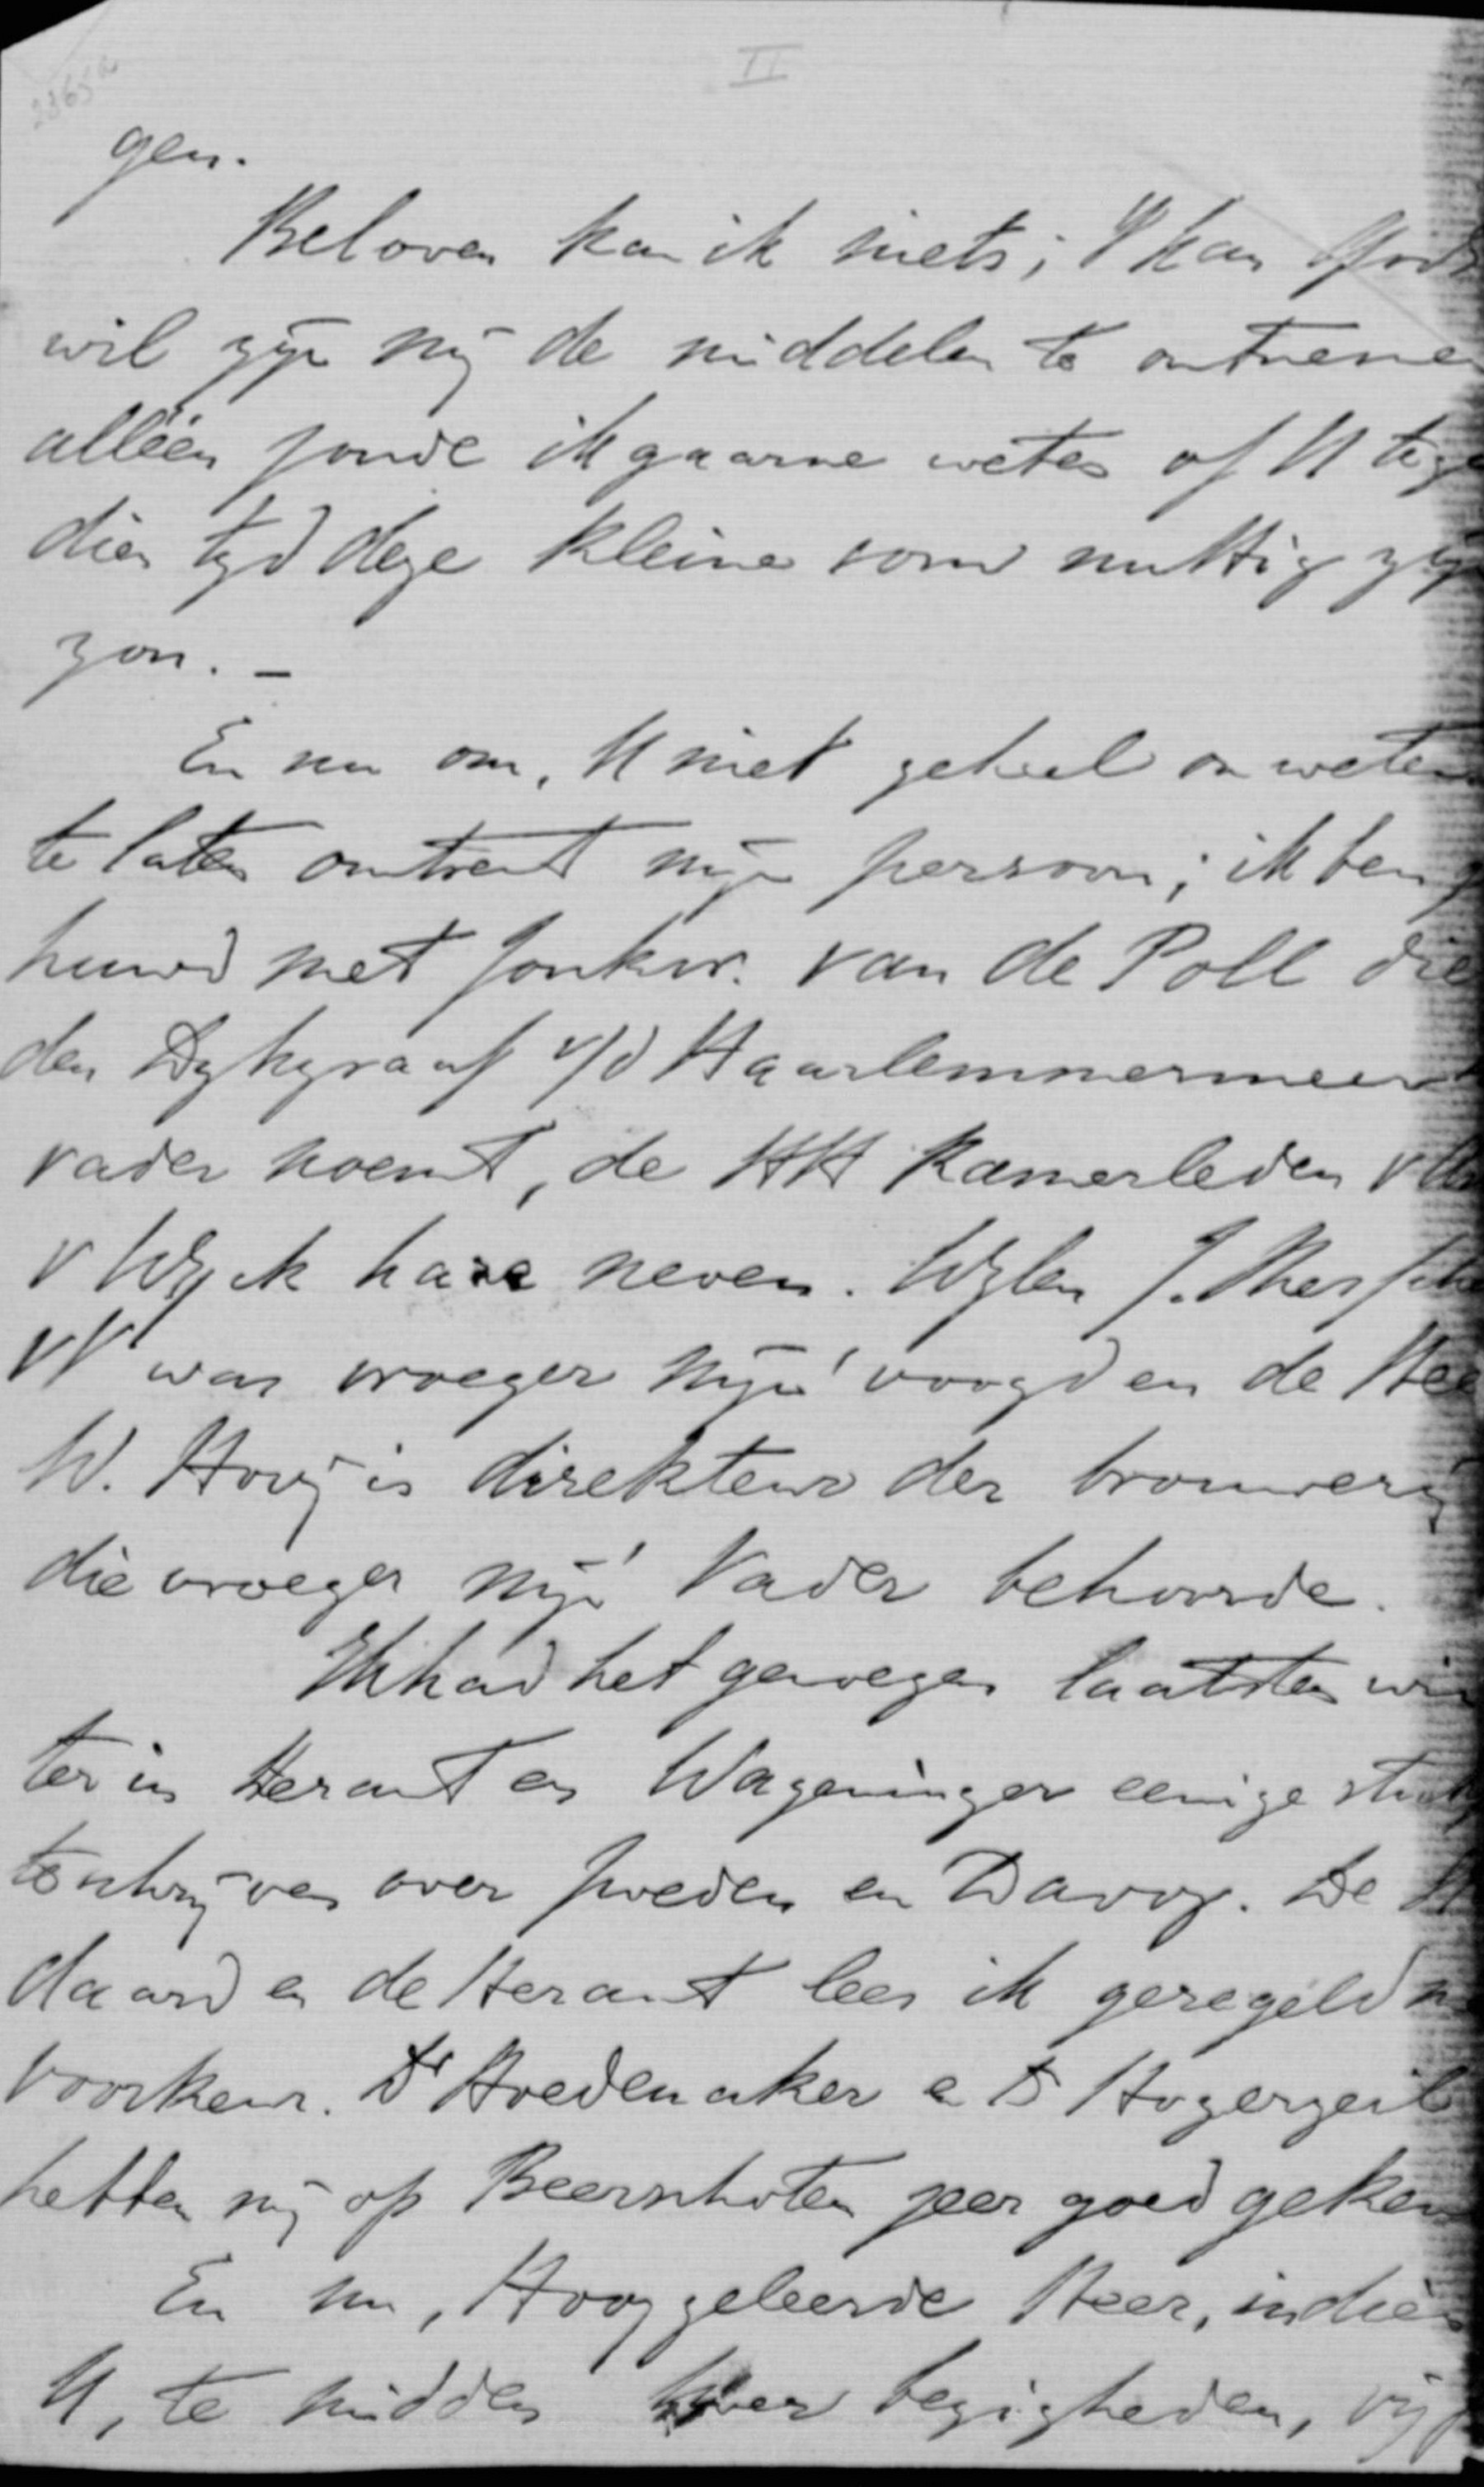 II
gen.
Beloven kan ik niets; 't kan Gods
wil zijn mij de middelen te ontneme
alléén zoude ik gaarne weten of U tege
dien tijd deze kleine som nuttig zijn
zou. –
En nu om, U niet geheel onweten
te laten omtrent mijn persoon; ik ben g
huwd met Jonkvr. van de Poll die
den Dykgraaf v/d Haarlemmermeer
vader noemt, de HH Kamerleden v
v Wyck hare neven. Wylen J. Messch
VV was vroeger mijn voogd en de Hee
W. Hovy is direkteur der brouwerij
die vroeger mijn Vader behoorde.
Ik had het genoegen laatsten win
ter in Heraut en Wageninger eenige stuk
te schrijven over Zweden en Davoz. De
daard en de Heraut lees ik geregeld
voorkeur. Dr Hoedemaker en Ds Hogerzeil
hebben mij op Beerschoten zeer goed geken
En nu, Hooggeleerde Heer, indien
U, te midden Uwer bezigheden, vijf